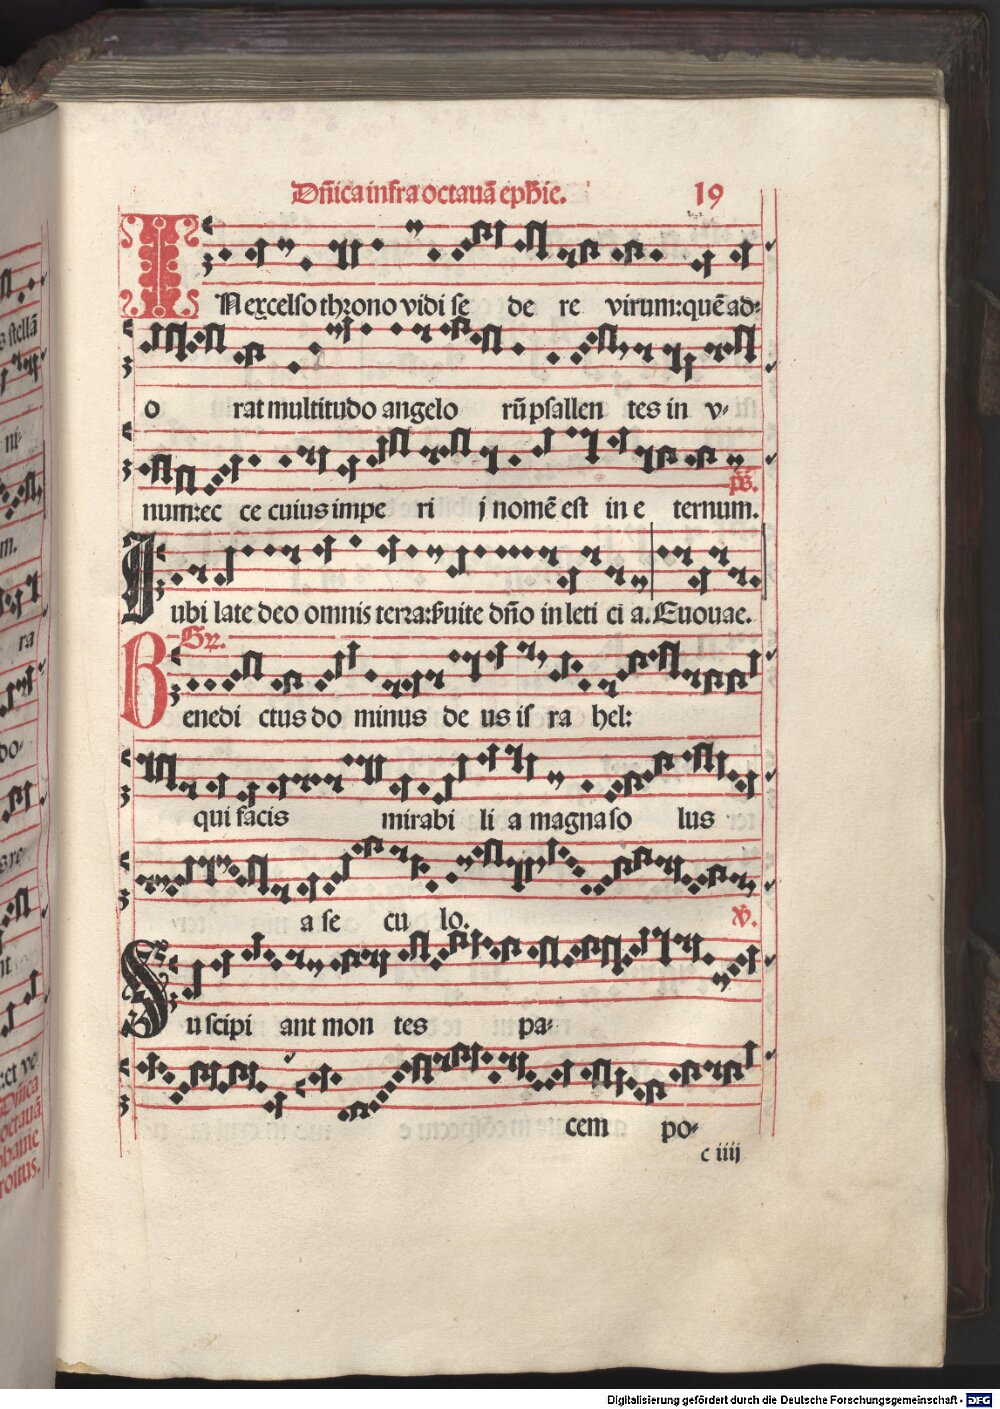 Dñica infra octauā eph̄ie. 19
IN excelso throno vidi se de re virum: quē ad-
o rat multitudo angelo rū psallen tes in v-
num: ec ce cuius impe ri j nomē est in e ternum.
ps̄.
Jubi late deo omnis terra: s̄uite dño in leti ci a. Euouae.
Gr.
Benedi ctus do minus de us is ra hel:
qui facis mirabi li a magna so lus
a se cu lo.
v̄.
Suscipi ant mon tes pa-
cem po-
c iiij
s stellā
ni-
m.
ra
do-
Dñica
octauā
Digitalisierung gefördert durch die Deutsche Forschungsgemeinschaft - DFG